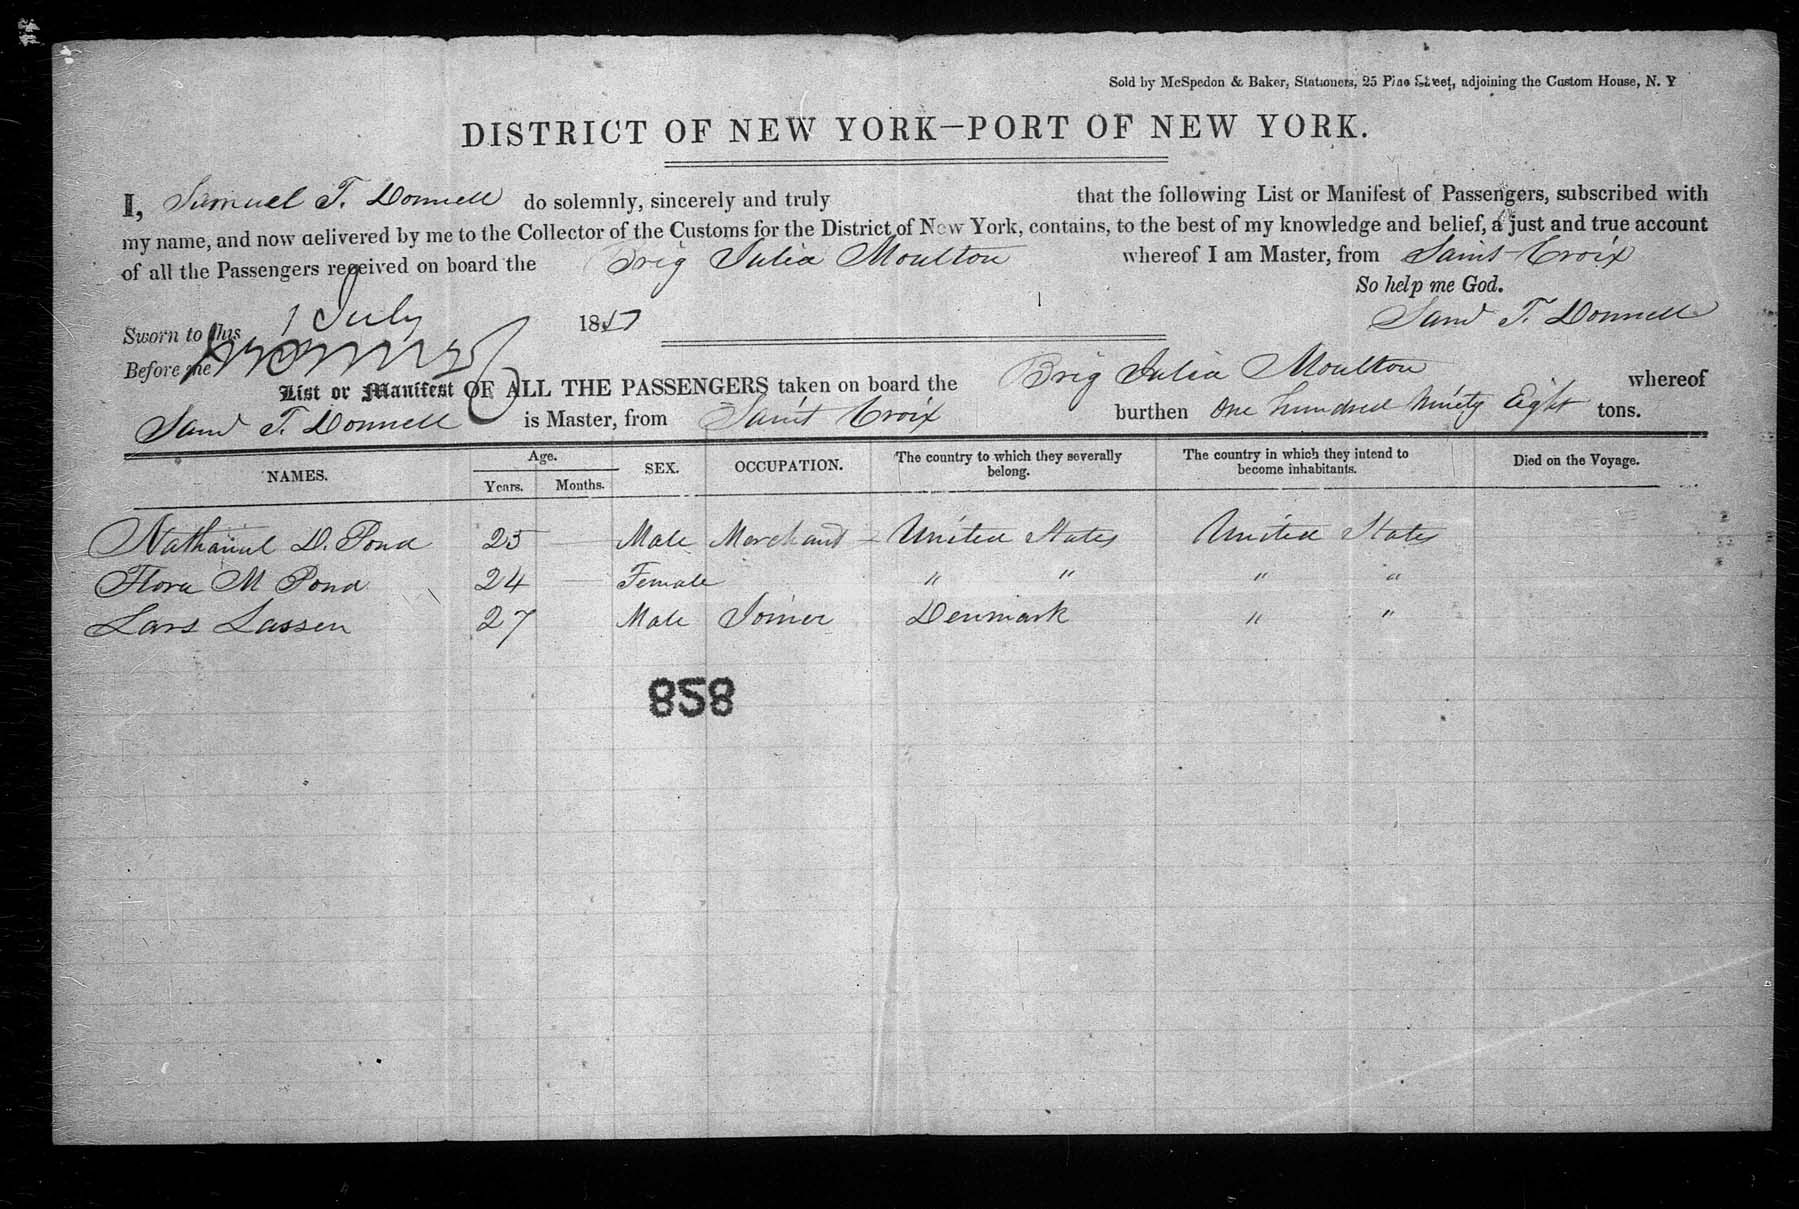 Sold by McSpedon & Baker, Stationers, 25 Pine Street, adjoining the Custom House, N. Y
DISTRICT OF NEW YORK—PORT OF NEW YORK.
I, Samuel T. Donnell do solemnly, sincerely and truly that the following List or Manifest of Passengers, subscribed with
my name, and now delivered by me to the Collector of the Customs for the District of New York, contains, to the best of my knowledge and belief, a just and true account
of all the Passengers received on board the Brig Julia Moulton whereof I am Master, from Saint Croix
So help me God.
Sworn to this 1 July 1857 Saml T. Donnell
Before me
List or Manifest OF ALL THE PASSENGERS taken on board the Brig Julia Moulton whereof
Saml T. Donnell is Master, from Saint Croix burthen One hundred Ninety Eight tons.
NAMES. Age. Years. Months. SEX. OCCUPATION. The country to which they severally belong. The country in which they intend to become inhabitants. Died on the Voyage.
Nathaniel D. Pond 25 Male Merchant United States United States
Flora M Pond 24 Female " " " "
Lars Lassen 27 Male Joiner Denmark " "
828